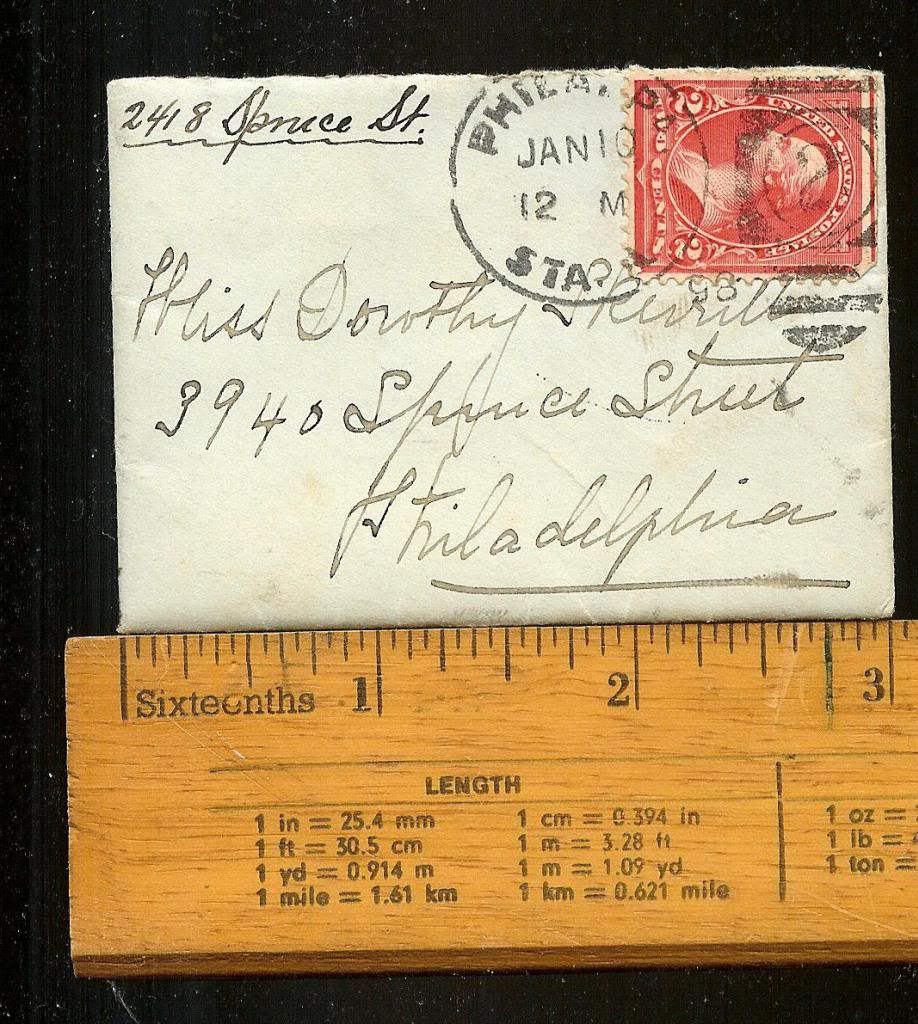 2418 Spruce St.
PHILA
JAN 10
12 M
STA
98
UNITED STATES POSTAGE
2 CENTS 2
2
Miss Dorothy
3940 Spruce Street
Philadelphia
Sixteenths 1 2 3
LENGTH
1 in = 25.4 mm 1 cm = 0.394 in 1 oz =
1 ft = 30.5 cm 1 m = 3.28 ft 1 lb =
1 yd = 0.914 m 1 m = 1.09 yd 1 ton =
1 mile = 1.61 km 1 km = 0.621 mile